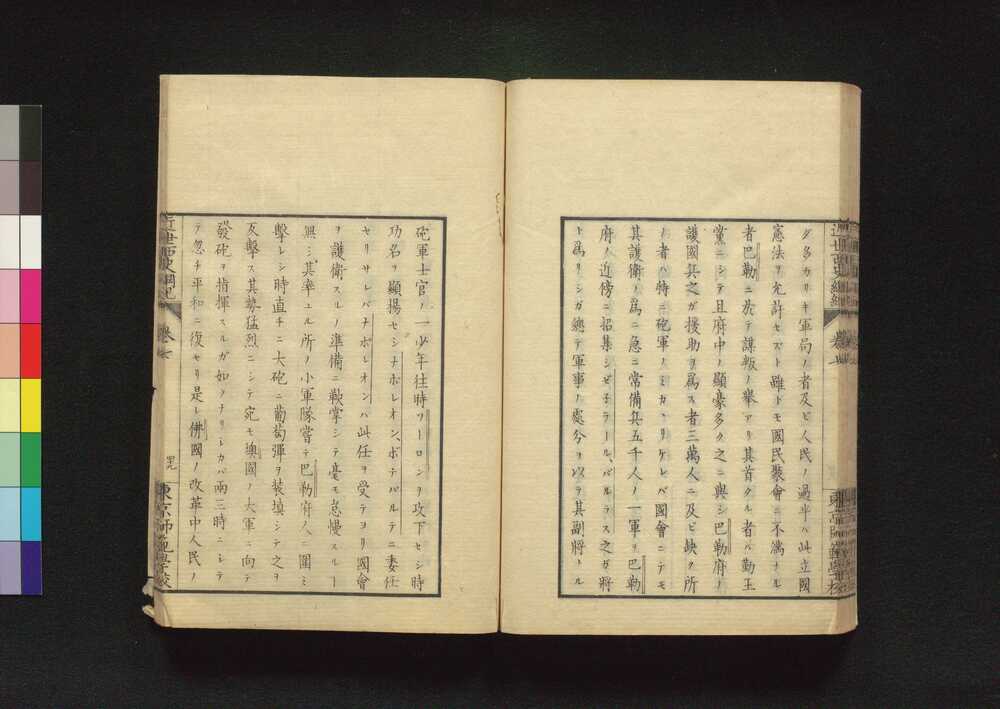 グ多カリキ軍局ノ者及ビ人民ノ過半ハ此立國
憲法ヲ允許セズト雖ドモ國民裝會ニ不満ナル
者巴勒ニ於テ謀叛ノ擧アリ其首タル者ハ勤王
黨ニシテ且府中ノ顯豪多ク之ニ與シ巴勒府ノ
護國兵之ガ援助ヲ爲ス者三萬人ニ及ビ缺ク所
ノ者ハ特ニ砲軍ノミカゝリケレバ國會ニテモ
其護衛ノ爲ニ急ニ常備兵五千人ノ一軍ヲ巴勒
府ノ近傍ニ招集シゼネラール、バルラス之ガ將
ト爲リシガ總テ軍事ノ處分ヲ以テ其副將タル
砲軍士官ノ一少年往時ツーロンヲ攻下セシ時
功名ヲ顯揚セシナポレオン、ボナパルテニ委任
セリサレバナポレオンハ此任ヲ受テヨリ國會
ヲ護衛スルノ準備ニ鞅掌シテ毫モ怠慢スル一
無シ其率ユル所ノ小軍隊嘗テ巴勒府人ニ圍ミ
擊レシ時直チニ大砲ニ葡萄彈ヲ裝填シテ之ヲ
反擊ス其勢猛烈ニシテ宛モ墺國ノ大軍ニ向テ
發砲ヲ指揮スルガ如クナリシカバ兩三時ニシ
テ忽チ平和ニ復セリ是レ佛國ノ改革中人民ノ
近世西史綱紀
卷七
罒九
東京師範學校